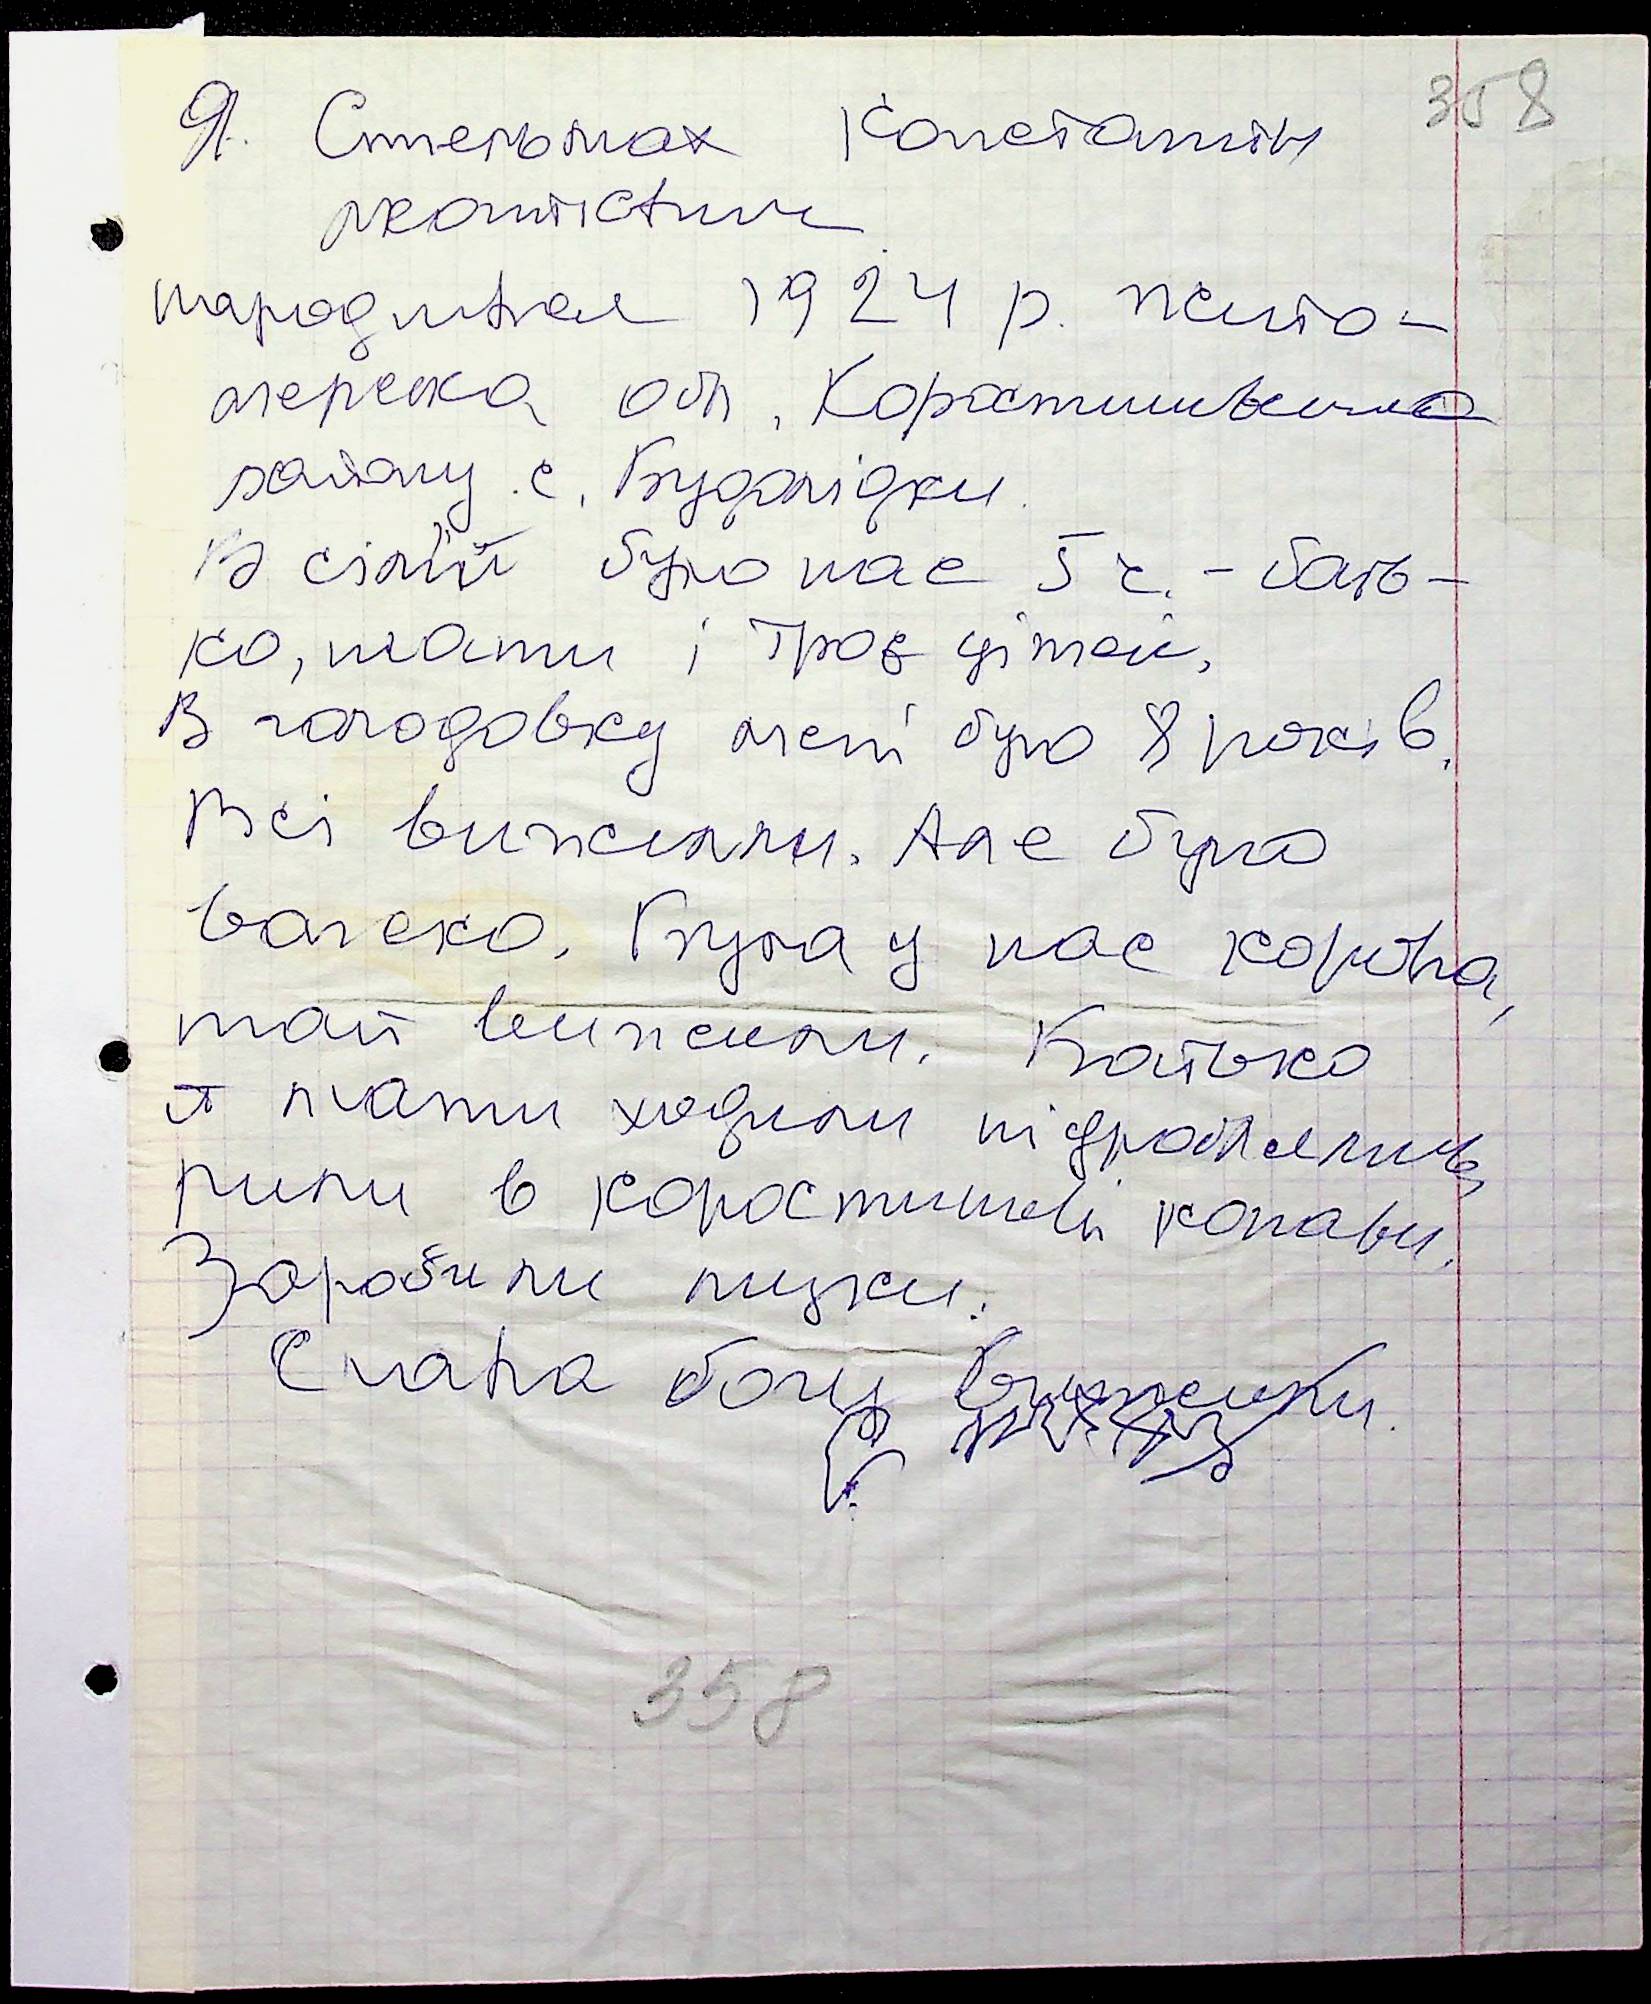 358
Я. Стельмах Константин
народився 1924 р. жито-
мерська обл, Коростишівського
району с. Будолідки.
В сім'ї було нас 5 ч. - бать-
ко, мати і троє дітей.
В голодовку мені було 8 років.
Всі вижили. Але було
важко. Була у нас корова,
тай вижили. Батько
й мати ходили підроблялись
рили в коростишеві канави.
Заробили пуки.
Слава богу вижили.
358